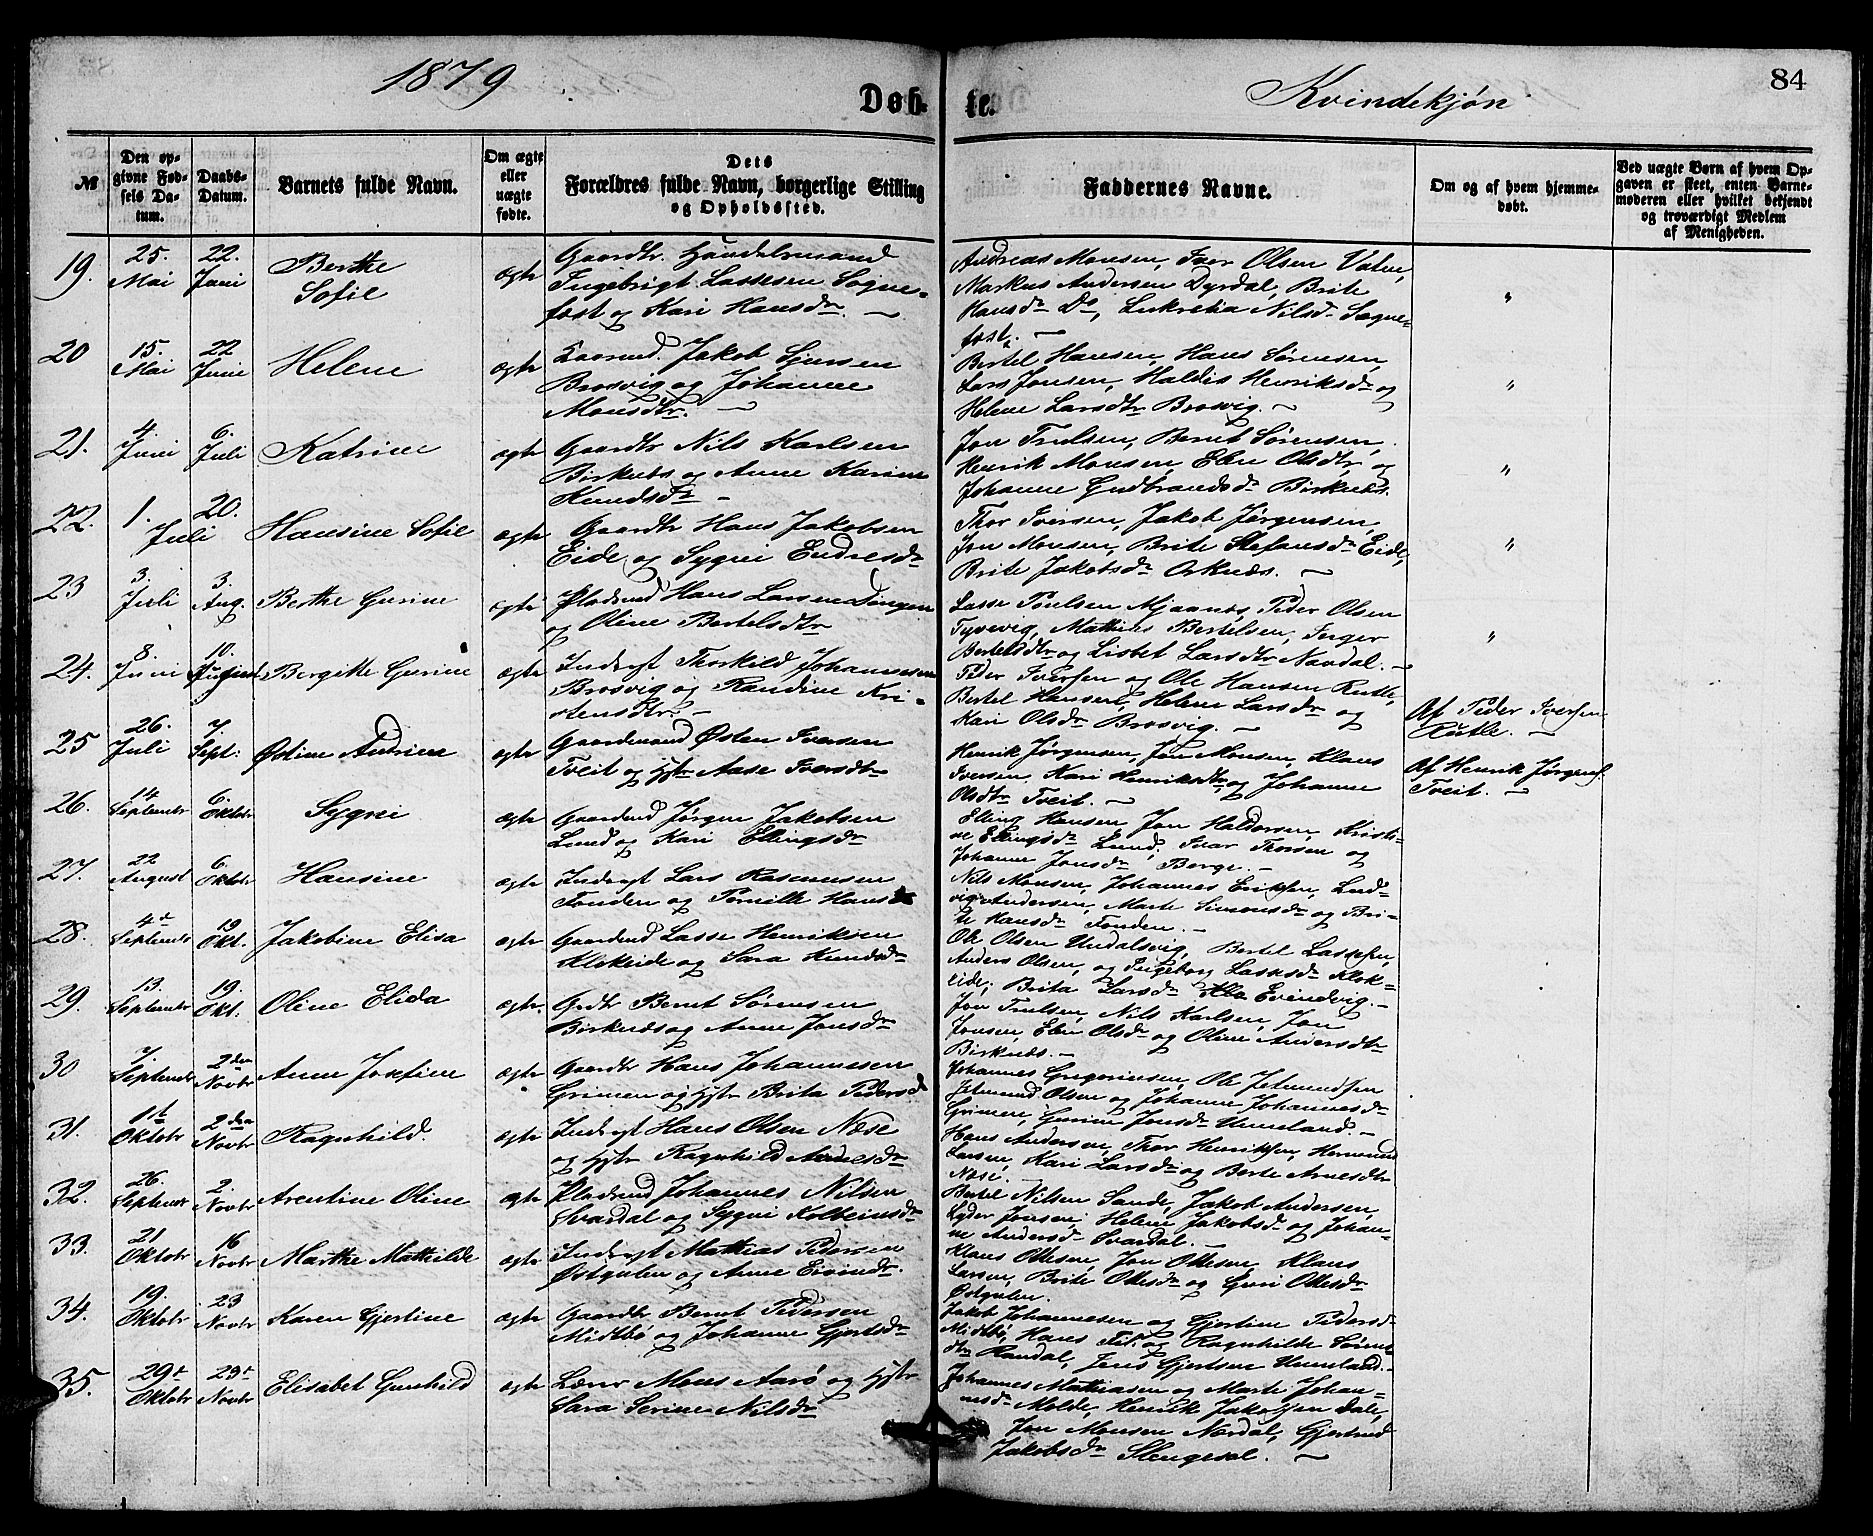 1879
Døb- te.
Kvindekjøn
84
№
Den op-
givne Fød-
sels Da-
tum.
Daabs-
Datum.
Barnets fulde Navn.
Om ægte
eller
uægte
fødte.
Dets
Forældres fulde Navn, borgerlige Stilling
og Opholdssted.
Faddernes Navne.
Om og af hvem hjemme-
døbt.
Ved uægte Børn af hvem Op-
gaven er skeet, enten Barne-
moderen eller hvilket bekjendt
og troværdigt Medlem
af Menigheden.
19. 25. Mai 22. Juni Berthe Sofie ægte
Gaardbr. Handelsmand
Ingebrigt Lassesen Sogne-
fæst og Kari Hansdr. —
Andreas Monsen, Iver Olsen
Markus Andersen Dyrdal, Brite
Hansdr Do, Lukretia Nilsdr Sogne-
fæst. —
"
20 15. Mai 22 Juni Helene ægte
Jakob
Brosvig og Johanne
Monsdtr. —
Bertel Hansen, Hans Sørensen,
Lars Jonsen, Haldis Henriksdr og
Helene Larsdtr Brosvig. —
"
21. 4. Juni 6. Juli Katrine ægte
Gaardbr Nils Karlsen
Birknes og Anne Karine
Knudsdr —
Jon Trulsen, Bernt Sørensen,
Henrik Monsen, Elen Olsdtr og
Johanne Gudbrandsdr Birknes.
"
22. 1. 20. Juli Hansine Sofie ægte
Gaardbr Hans Jakobsen
Eide og Sygni Endresdr
Thor Iversen, Jakob Jørgensen,
Jon Monsen, Brite Stefansdr Eide,
Brite Jakobsdr Oknæs. —
"
23 3. Juli 3. Aug. Berthe Gurine ægte
Pladsmd Hans Larsen
og Oline Bertelsdtr
Lasse Poulsen Mjaanes, Peder Olsen
Tyvevig, Mathias Bertelsen, Inger
Bertelsdtr og Lisbet Larsdtr Nordal. —
"
24. 8. Juni 10. August Bergitte Gurine ægte
Inderst Thorkild Johannesen
Brosvig og Randine Kri-
stensdtr. —
Peder Iversen og Ole Hansen Rutle,
Bertel Hansen, Helene Larsdr og
Kari Olsdr Brosvig. —
Af Peder Iversen
Rutle. —
25 26. Juli 7. Sept. Østine Andrine ægte
Gaardmand Østen Iversen
Tveit og Hstr Aase Iversdtr
Henrik Jørgensen, Jon Monsen, Klaus
Iversen, Kari Henriksdtr og Johanne
Olsdtr Tveit. —
Af Henrik Jørgens.
Tveit. —
26. 14 Septembr 6. Oktobr Sygni ægte
Gaardmd Jørgen Jakobsen
Lund og Kari Ellingsdr
Elling Hansen, Jon Haldorsen, Kristi-
ne Ellingsdr Lund, Ivar Thorsen og
Johanne Jonsdr Berge. —
27. 22 August 6. Oktobr Hansine ægte
Inderst Lars Rasmussen
Fonden og Pernille Hansdr
Nils Monsen, Johannes Eriksen, Lud-
vig Andersen, Marte Simonsdr og Bri-
te Hansdr Fonden. —
28. 4de Septembr 19. Okt. Jakobine Elisa ægte
Gaardmd Lasse Henriksen
Klokeide og Sara Knudsdr
Ole Olsen Undalsvig, Bertel Lassesen,
Anders Olsen, og Ingeborg Lassesdr Klok-
eide, Brita Larsdr Evindvig. —
29. 13. Septembr 19. Okt. Oline Elida ægte.
Grdbr Bernt Sørensen
Birknæs og Anne Jonsdr
Jon Trulsen, Nils Karlsen, Jon
Jonsen, Elen Olsdr og Oline Andersdtr
Birknæs. —
30 7. Septembr 2den Novbr Anne Josefine ægte
Gaardbr Hans Johannesen
Grimen og Hstr Brita Pedersd
Johannes Gregoriusen, Ole Jetmundsen
Jetmund Olsen og Johanne Johannesdr
Grimen, Gurine Jonsdr Unneland. —
31. 1st Oktobr 2den Novbr Ragnhild. ægte
Inderst Hans Olsen Næse
og Hstr Ragnhild Arnesdr
Hans Andersen, Thor Henriksen, Hermund
Larsen, Kari Larsdr og Berte Arnesdtr
Næse. —
32. 26. Septembr 2 Novbr Arentine Oline ægte
Pladsmd Johannes Nilsen
Svardal og Sygni Kolbeinsdr
Bertel Nilsen Sande, Jakob Andersen,
Lyder Jonsen, Helene Jakobsdr og Johan-
ne Andersdr Svardal. —
33. 21 Oktobr 16 Novbr Marthe Mathilde ægte
Inderst Mathias Pedersen
Østgulen og Anne Eivindr.
Klaus Ottesen, Jon Ottesen, Klaus
Larsen, Brite Ottesdr og Guri Ottesdr
Østgulen.
34. 19. Oktobr 23 Novbr Karen Gjertine ægte
Gaardbr Bernt Pedersen
Midtbø og Johanne Gjertsdr
Jakob Johannesen og Gjertine Pedersdr
Midtbø, Hans Pet. og Ragnhilde Søren-
dtr Randal, Jens Gjertsen Unneland. —
35. 29t Oktobr 23t Novbr Elisabet Gunhild ægte
Lærer Mons Aarø og Hstr
Sara Serine Nilsdr
Johannes Mathiasen og Marte Johan-
nesdr Molde, Henrik Jakobsen Dale,
Jon Monsen Nordal, Gjertrud
Jakobsdr Slengesol. —